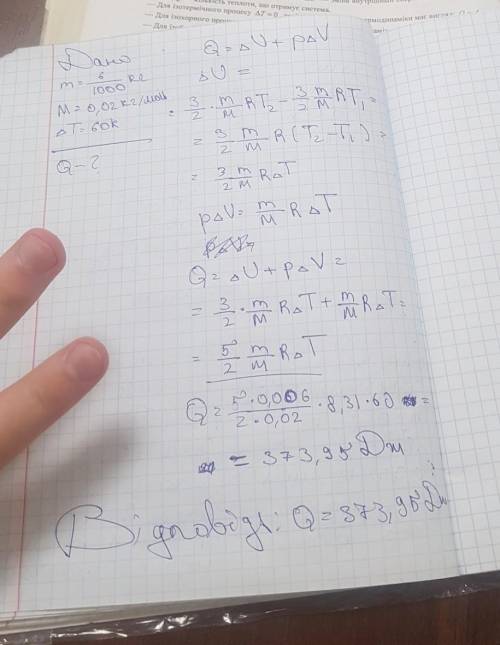 кількість теплоти, що отримує система.
— Для ізотермічного процесу ΔT = 0
— Для ізохорного
Дано
m = 6/1000 кг
M = 0,02 кг/моль
ΔT = 60K
Q – ?
Q = ΔU + pΔV
ΔU =
= 3/2 · m/M RT₂ – 3/2 m/M RT₁ =
= 3/2 m/M R (T₂ – T₁) =
= 3/2 m/M RΔT
pΔV = m/M RΔT
Q = ΔU + pΔV =
= 3/2 · m/M RΔT + m/M RΔT =
= 5/2 m/M RΔT
Q = 5·0,006/2·0,02 · 8,31·60 =
= 373,95 Дж
Відповідь: Q = 373,95 Дж